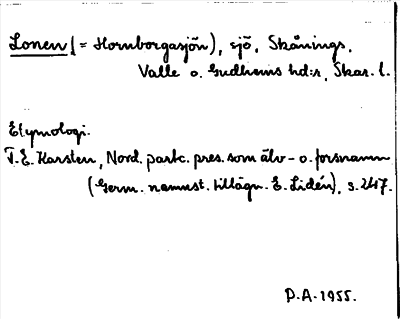 Lonen (= Hornborgasjön), sjö, Skånings,
Valle o. Gudhems hd:r, Skar. l.
Etymologi.
T.E. Karsten, Nord. partc. pres. som älv- o. forsnamn
(Germ. namnst. tillägn. E. Lidén), s. 247.
D.A. 1955.